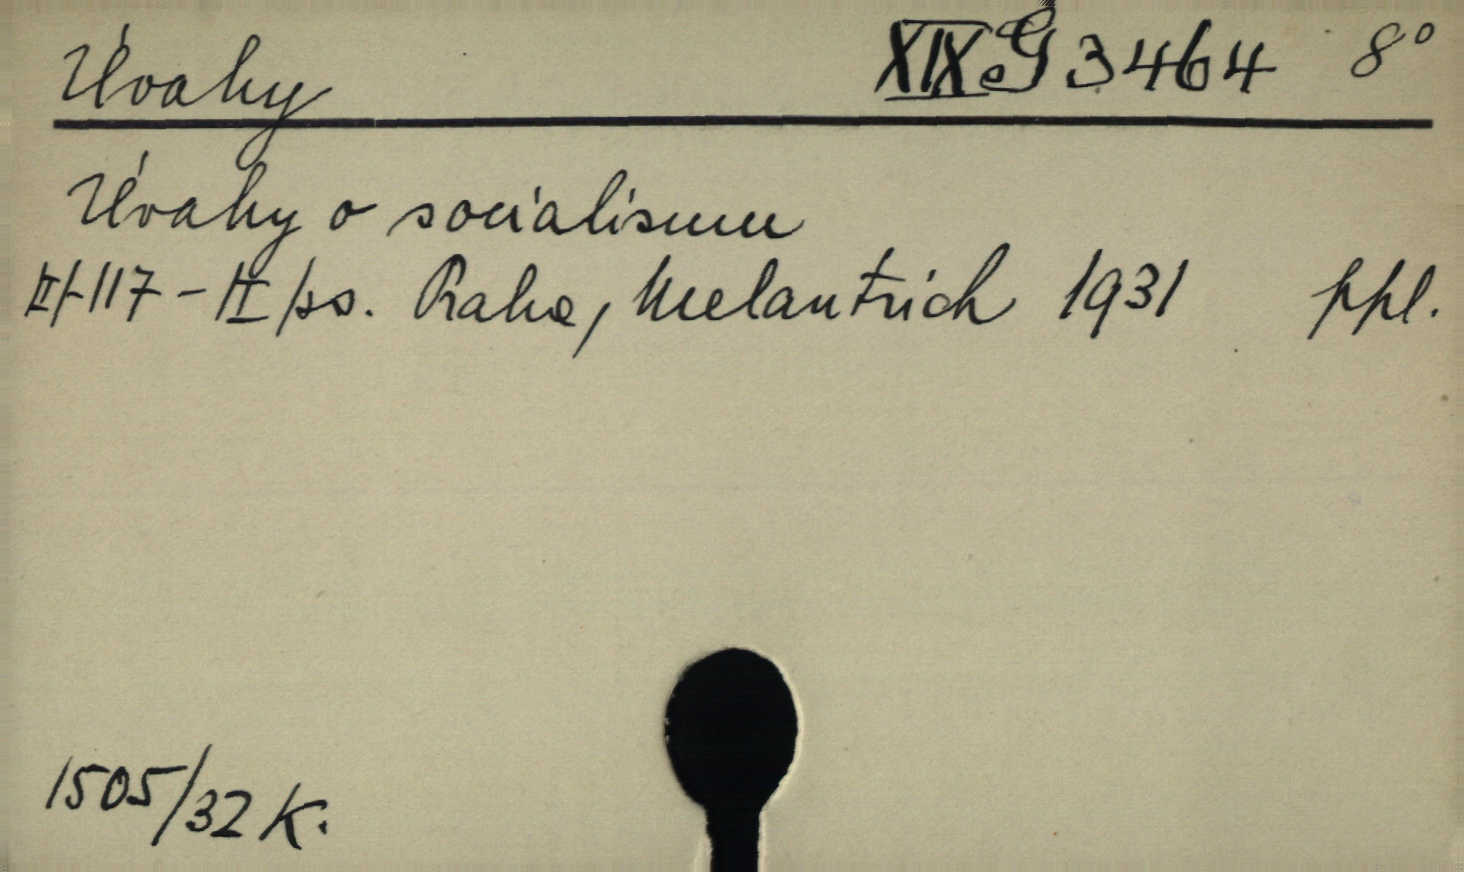 Úvahy XIX.G 3464 8°
Úvahy o socialismu
II/-117-II/ss. Praha, Melantrich 1931 ppl.
1505/32 K.